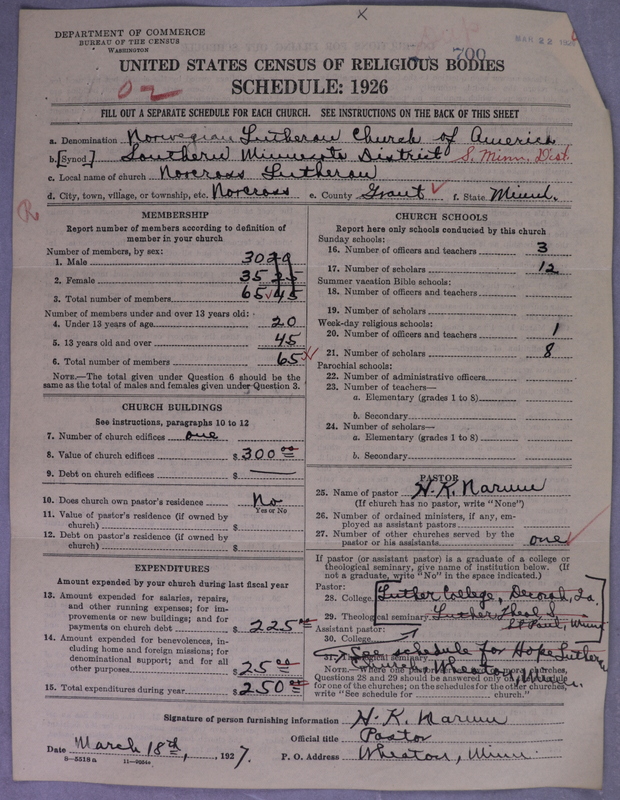 X
DEPARTMENT OF COMMERCE
BUREAU OF THE CENSUS
WASHINGTON
700
MAR 22 192
UNITED STATES CENSUS OF RELIGIOUS BODIES
SCHEDULE: 1926
FILL OUT A SEPARATE SCHEDULE FOR EACH CHURCH. SEE INSTRUCTIONS ON THE BACK OF THIS SHEET
a. Denomination Norwegian Lutheran Church of America
b. [Synod] Southern Minnesota District S. Minn. Dist.
c. Local name of church Norcross Lutheran
d. City, town, village, or township, etc. Norcross e. County Grant ✓ f. State Minn.
R
MEMBERSHIP
Report number of members according to definition of
member in your church
Number of members, by sex:
1. Male 30 20
2. Female 35 25
3. Total number of members 65 ✓ 45
Number of members under and over 13 years old:
4. Under 13 years of age 20
5. 13 years old and over 45
6. Total number of members 65
NOTE.—The total given under Question 6 should be the
same as the total of males and females given under Question 3.
CHURCH BUILDINGS
See instructions, paragraphs 10 to 12
7. Number of church edifices one
8. Value of church edifices $ 300 00
9. Debt on church edifices $ —
10. Does church own pastor's residence No
Yes or No
11. Value of pastor's residence (if owned by
church) $
12. Debt on pastor's residence (if owned by
church) $
EXPENDITURES
Amount expended by your church during last fiscal year
13. Amount expended for salaries, repairs,
and other running expenses; for im-
provements or new buildings; and for
payments on church debt $ 225 00
14. Amount expended for benevolences, in-
cluding home and foreign missions; for
denominational support; and for all
other purposes $ 25 00
15. Total expenditures during year $ 250 00
CHURCH SCHOOLS
Report here only schools conducted by this church
Sunday schools:
16. Number of officers and teachers 3
17. Number of scholars 12
Summer vacation Bible schools:
18. Number of officers and teachers
19. Number of scholars
Week-day religious schools:
20. Number of officers and teachers 1
21. Number of scholars 8
Parochial schools:
22. Number of administrative officers
23. Number of teachers—
a. Elementary (grades 1 to 8)
b. Secondary
24. Number of scholars—
a. Elementary (grades 1 to 8)
b. Secondary
PASTOR
25. Name of pastor H. K.
(If church has no pastor, write "None")
26. Number of ordained ministers, if any, em-
ployed as assistant pastors
27. Number of other churches served by the
pastor or his assistants one
If pastor (or assistant pastor) is a graduate of a college or
theological seminary, give name of institution below. (If
not a graduate, write "No" in the space indicated.)
Pastor:
28. College Luther College, Decorah, Ia.
29. Theological seminary Luther Theol. S
St Paul, Minn
Assistant pastor:
30. College
See schedule for Hope Lutheran
31. Theological seminary
Church, Wheaton, Minn.
NOTE.—Where one pastor serves two or more churches,
Questions 28 and 29 should be answered only on the schedule
for one of the churches; on the schedules for the other churches,
write "See schedule for church."
Signature of person furnishing information H. K.
Official title Pastor
Date March 18th, 1927. P. O. Address Wheaton, Minn.
8—5518a 11—9054